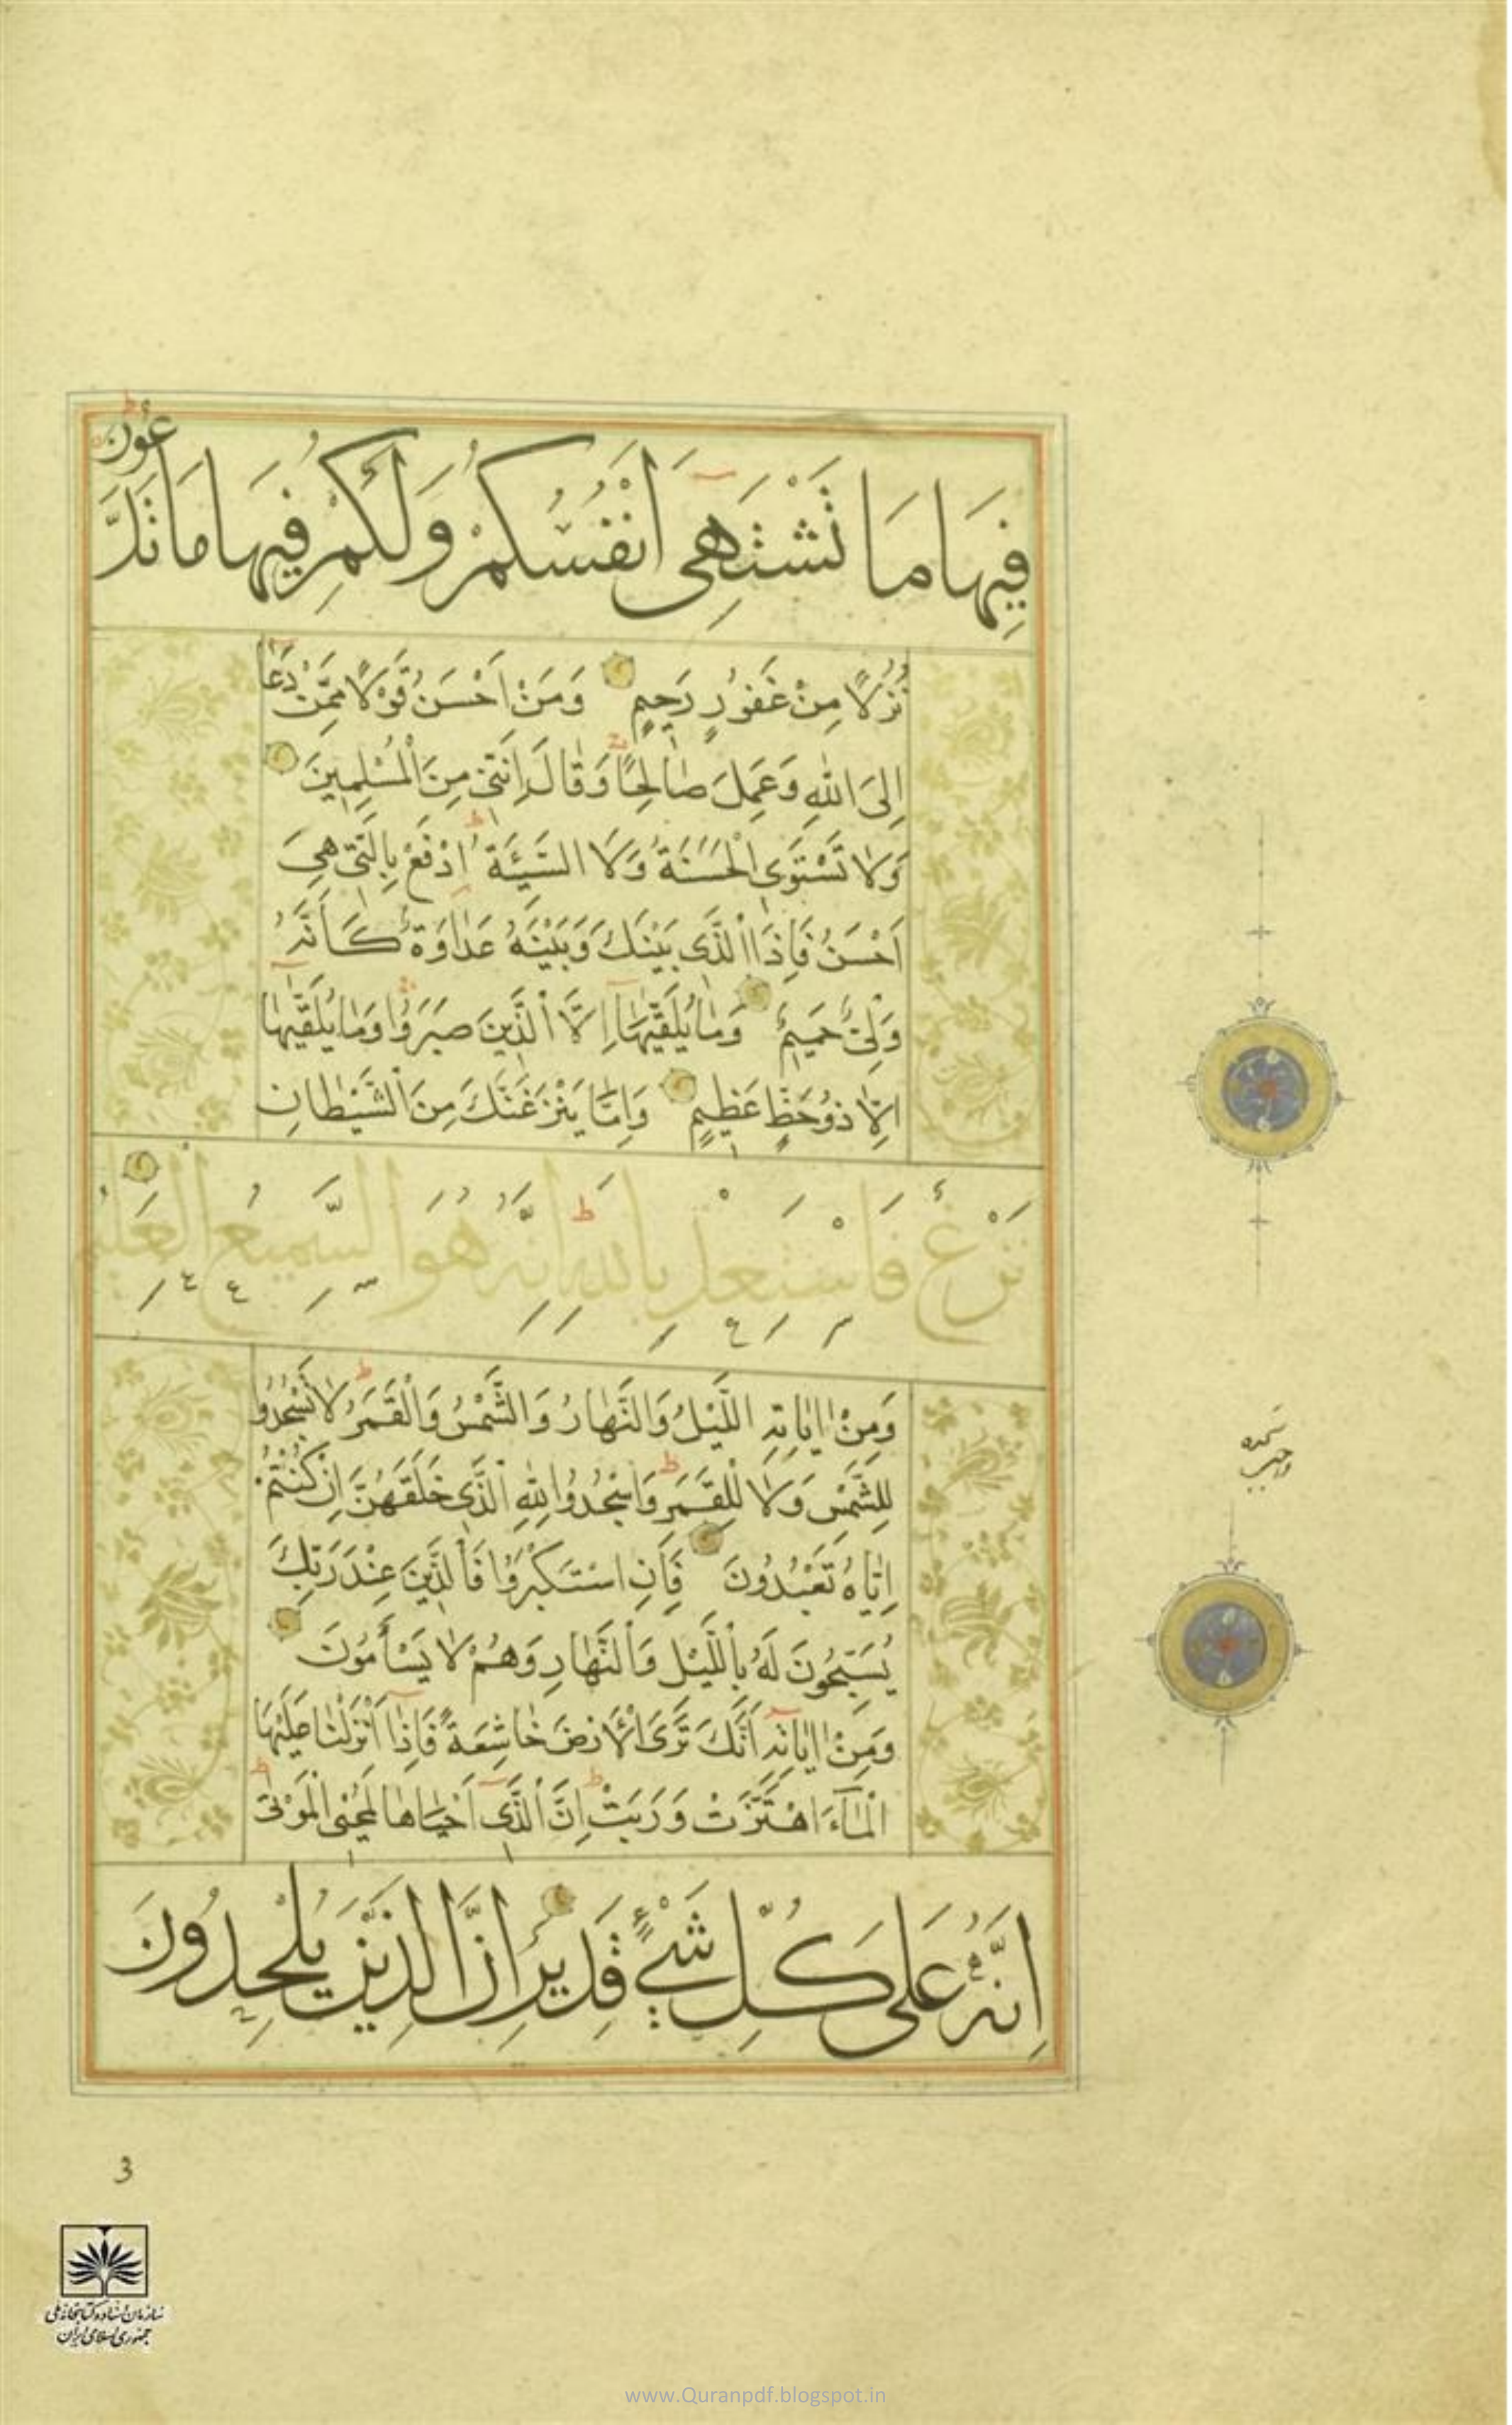 فِيهَا مَا تَشْتَهِى اَنْفُسُكُمْ وَلَكُمْ فِيهَا مَا تَدَّعُونَ
نُزُلًا مِنْ غَفُورٍ رَحِيمٍ وَمَنْ اَحْسَنُ قَوْلًا مِمَّنْ دَعَا
اِلَى اللهِ وَعَمِلَ صَالِحًا وَقَالَ اِنَّنِى مِنَ الْمُسْلِمِينَ
وَلَا تَسْتَوِى الْحَسَنَةُ وَلَا السَّيِّئَةُ اِدْفَعْ بِالَّتِى هِىَ
اَحْسَنُ فَاِذَا الَّذِى بَيْنَكَ وَبَيْنَهُ عَدَاوَةٌ كَاَنَّهُ
وَلِىٌّ حَمِيمٌ وَمَا يُلَقّٰيهَا اِلَّا الَّذِينَ صَبَرُوا وَمَا يُلَقّٰيهَا
اِلَّا ذُو حَظٍّ عَظِيمٍ وَاِمَّا يَنْزَغَنَّكَ مِنَ الشَّيْطَانِ
نَزْغٌ فَاسْتَعِذْ بِاللهِ اِنَّهُ هُوَ السَّمِيعُ الْعَلِيمُ
وَمِنْ اٰيَاتِهِ اللَّيْلُ وَالنَّهَارُ وَالشَّمْسُ وَالْقَمَرُ لَا تَسْجُدُوا
لِلشَّمْسِ وَلَا لِلْقَمَرِ وَاسْجُدُوا لِلّٰهِ الَّذِى خَلَقَهُنَّ اِنْ كُنْتُمْ
اِيَّاهُ تَعْبُدُونَ فَاِنِ اسْتَكْبَرُوا فَالَّذِينَ عِنْدَ رَبِّكَ
يُسَبِّحُونَ لَهُ بِاللَّيْلِ وَالنَّهَارِ وَهُمْ لَا يَسْاَمُونَ
وَمِنْ اٰيَاتِهِ اَنَّكَ تَرَى الْاَرْضَ خَاشِعَةً فَاِذَا اَنْزَلْنَا عَلَيْهَا
الْمَاءَ اهْتَزَّتْ وَرَبَتْ اِنَّ الَّذِى اَحْيَاهَا لَمُحْيِى الْمَوْتٰى
اِنَّهُ عَلٰى كُلِّ شَىْءٍ قَدِيرٌ اِنَّ الَّذِينَ يُلْحِدُونَ
سجده
واجب
3
سازمان اسناد و کتابخانه ملی
جمهوری اسلامی ایران
www.Quranpdf.blogspot.in